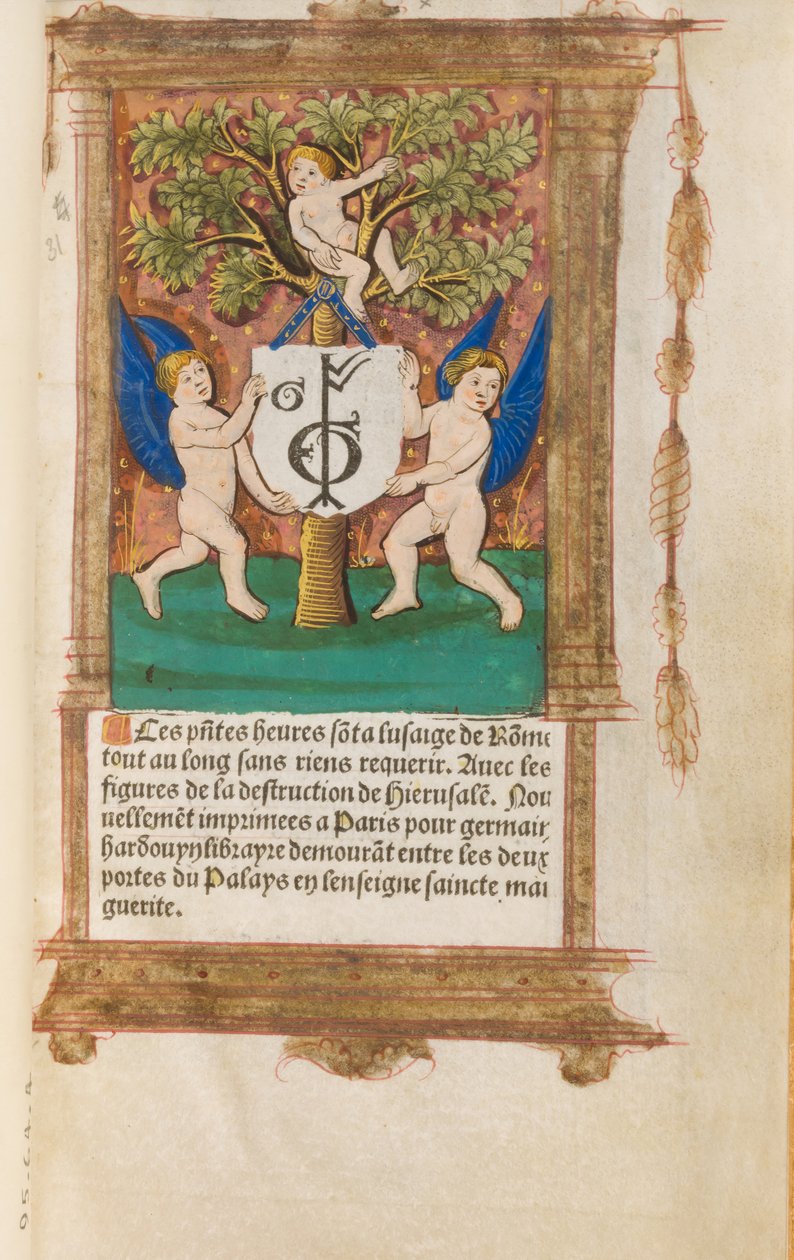 31
G
Ces pñtes heures sõt a lusaige de Rõme
tout au long sans riens requerir. Auec les
figures de la destruction de Hierusalẽ. Nou
uellemẽt imprimees a Paris pour germain
hardouyn librayre demourãt entre les deux
portes du Palays en lenseigne saincte mar
guerite.